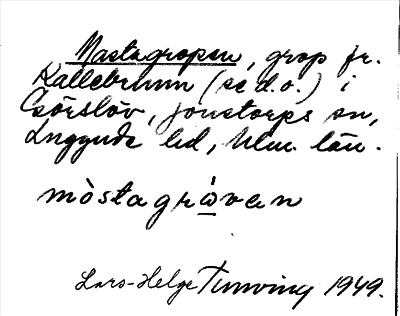 Mastagropen, grop fr.
Kallebrunn (se d.o.) i
Görslöv, Jonstorps sn,
Luggude hd, Mlm. län.
mòstagrávan
Lars-Helge Tunving 1949.